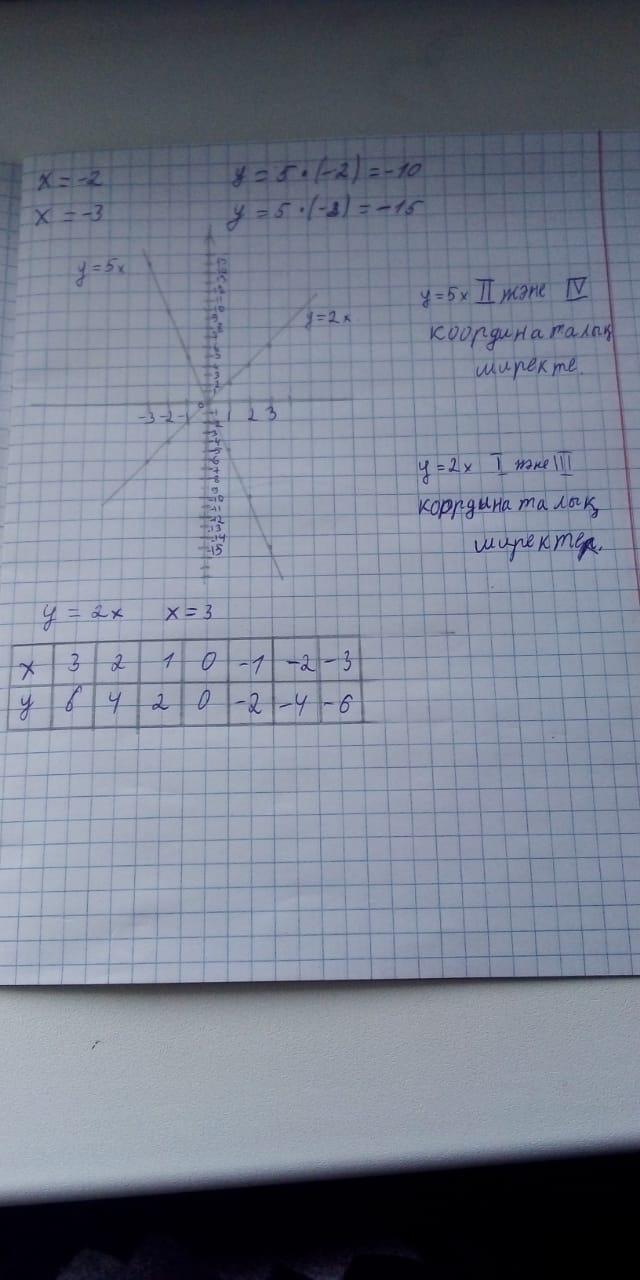 x = -2 y = 5 · (-2) = -10
x = -3 y = 5 · (-3) = -15
y = 5x
y = 2x
-3 -2 -1 0 1 2 3
y = 5x II және IV
координаталық
ширекте.
y = 2x I және III
коррдынаталық
ширектер.
y = 2x x = 3
x 3 2 1 0 -1 -2 -3
y 6 4 2 0 -2 -4 -6